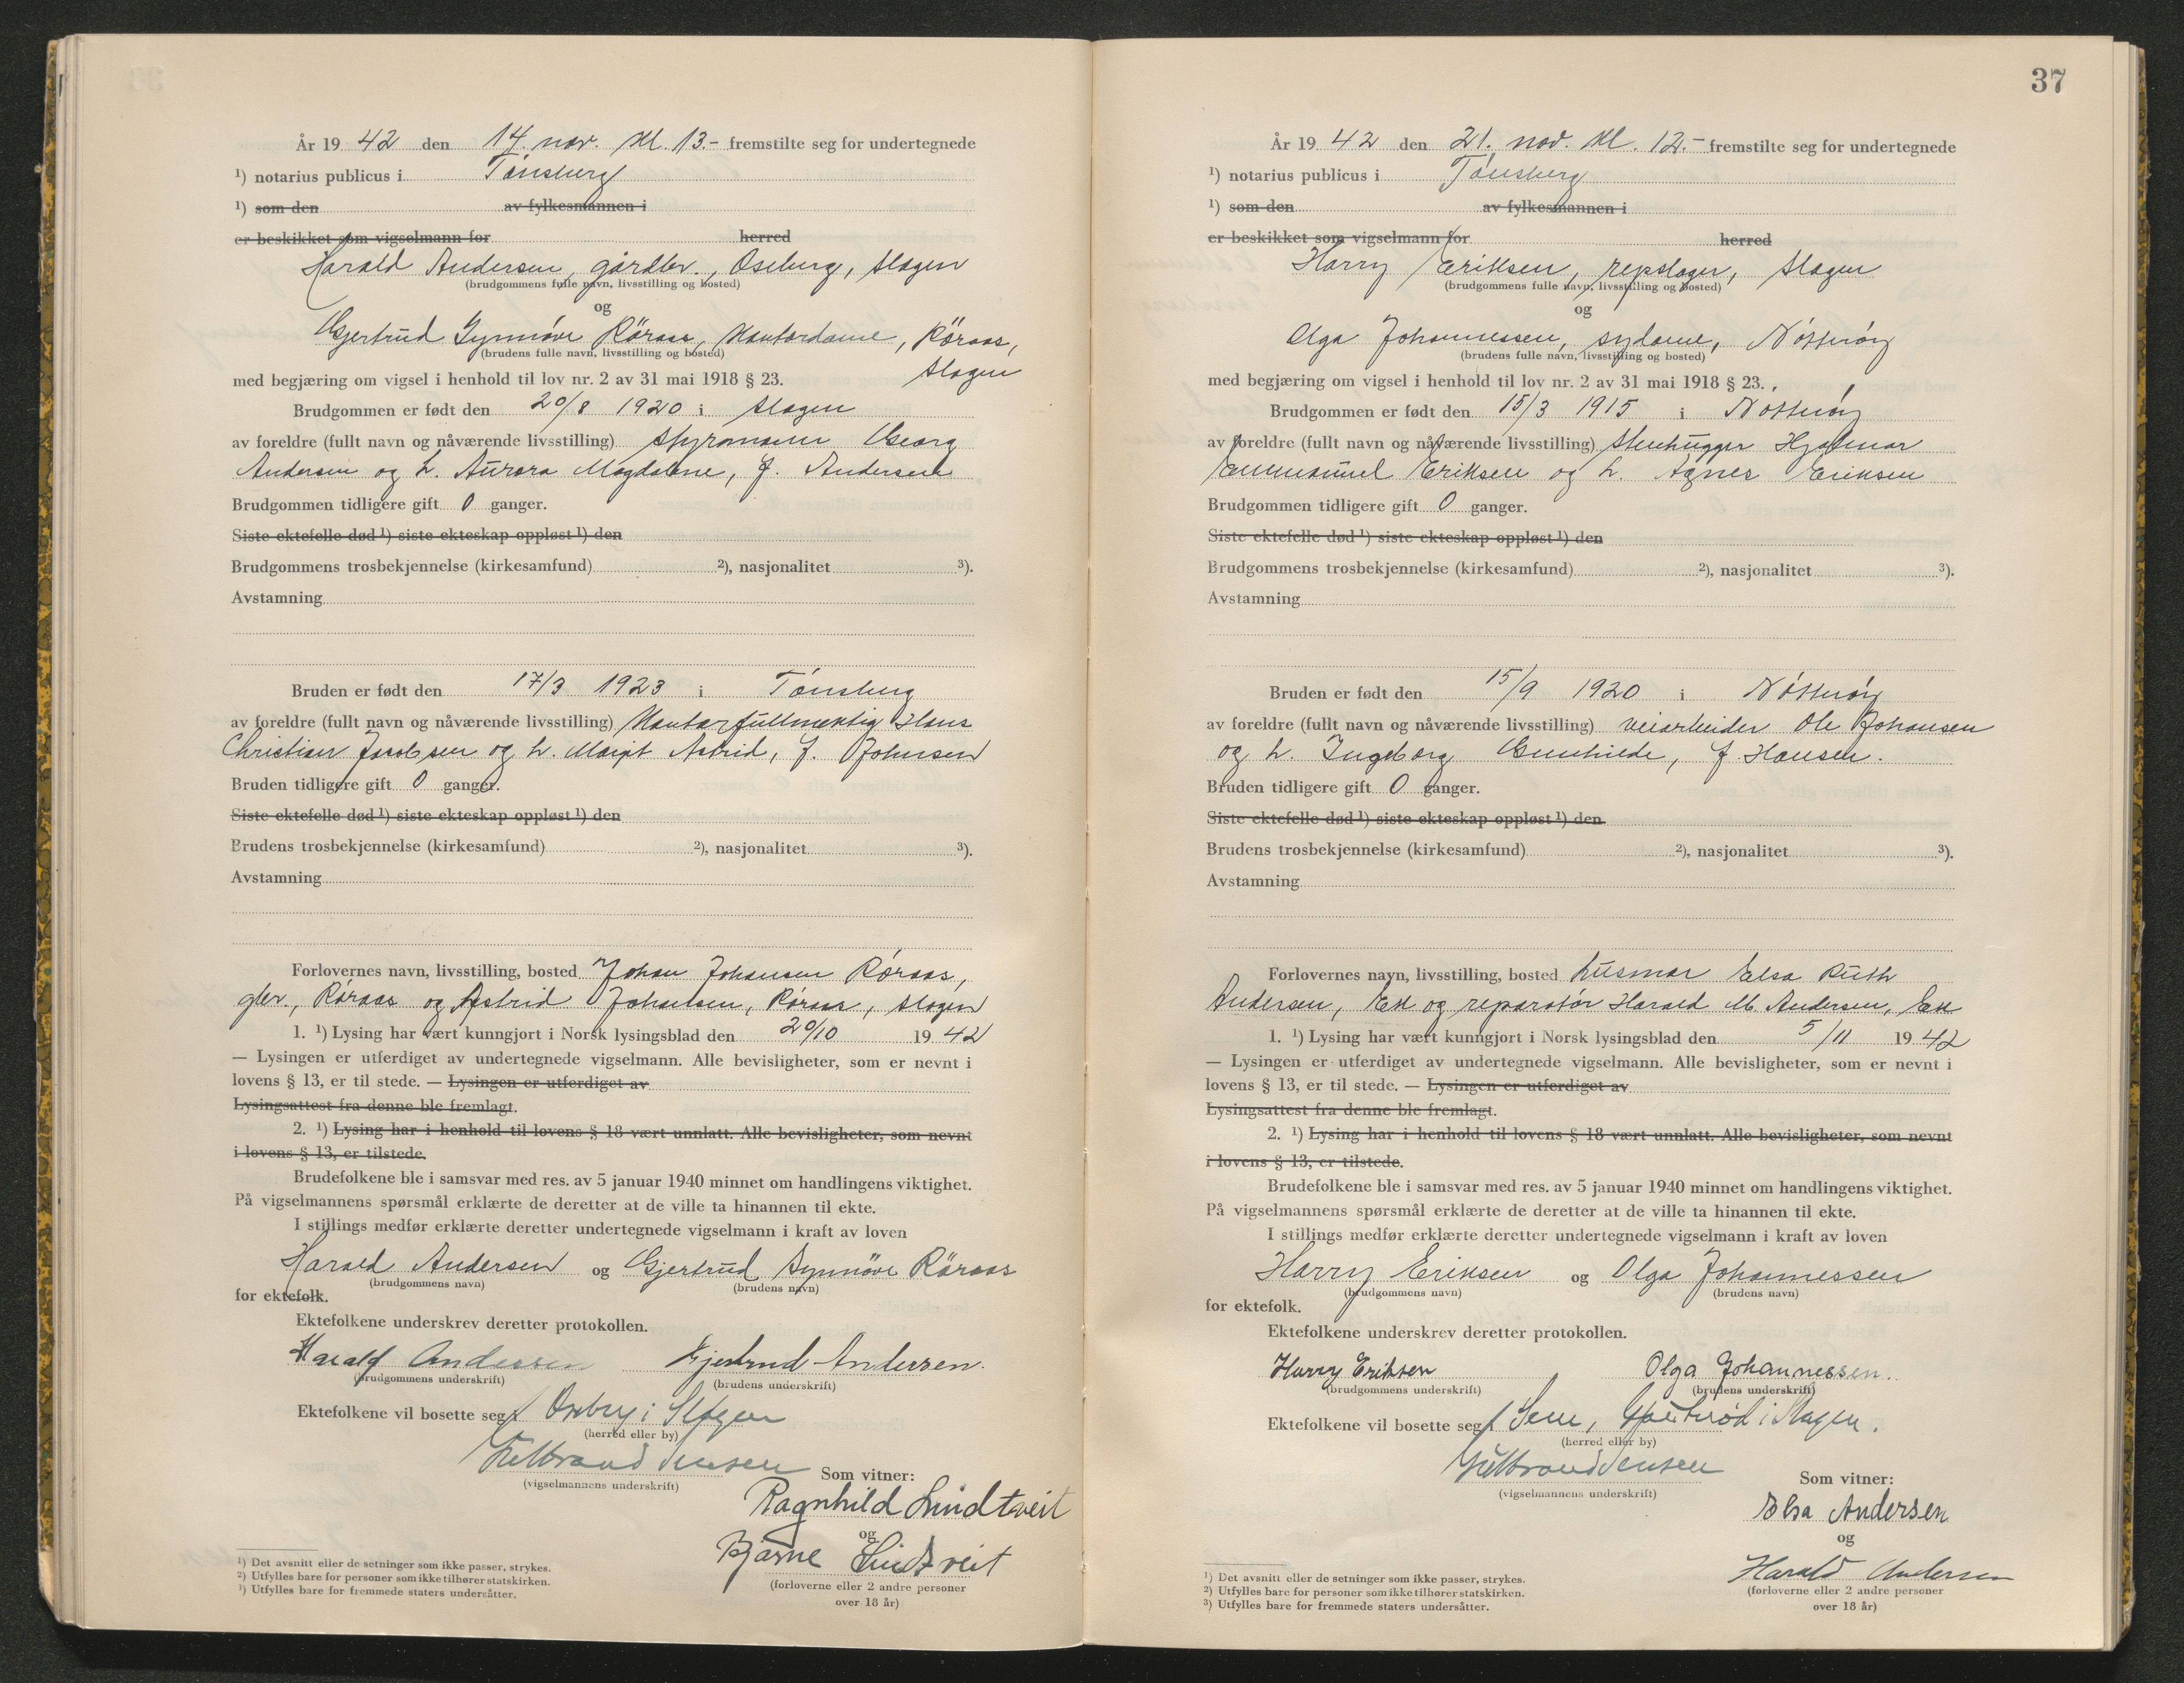 År 19 42 den 14. nov. kl. 13.- fremstilte seg for undertegnede
¹) notarius publicus i Tønsberg
¹) som den av fylkesmannen i
er beskikket som vigselmann for herred
Harald Andersen, gårdbr., Oseberg, Slagen
(brudgommens fulle navn, livsstilling og bosted)
og
Gjertrud Synnöve Röraas, kontordame, Röraas,
(brudens fulle navn, livsstilling og bosted)
Slagen
med begjæring om vigsel i henhold til lov nr. 2 av 31 mai 1918 § 23.
Brudgommen er født den 20/8 1920 i Slagen
av foreldre (fullt navn og nåværende livsstilling) styrmann Georg
Andersen og h. Aurora Magdalene, f. Andersen
Brudgommen tidligere gift 0 ganger.
Siste ektefelle død ¹) siste ekteskap oppløst ¹) den
Brudgommens trosbekjennelse (kirkesamfund) ²), nasjonalitet ³).
Avstamning
Bruden er født den 17/3 1923 i Tønsberg
av foreldre (fullt navn og nåværende livsstilling) kontorfullmektig Hans
Christian Jacobsen og h. Margit Astrid, f. Johnsen
Bruden tidligere gift 0 ganger.
Siste ektefelle død ¹) siste ekteskap oppløst ¹) den
Brudens trosbekjennelse (kirkesamfund) ²), nasjonalitet ³).
Avstamning
Forlovernes navn, livsstilling, bosted Johan Johansen Röraas,
gbr., Röraas og Astrid Johansen, Röraas, Slagen
1. ¹) Lysing har vært kunngjort i Norsk lysingsblad den 20/10 19 42
— Lysingen er utferdiget av undertegnede vigselmann. Alle bevisligheter, som er nevnt i
lovens § 13, er til stede. — Lysingen er utferdiget av
Lysingsattest fra denne ble fremlagt.
2. ¹) Lysing har i henhold til lovens § 18 vært unnlatt. Alle bevisligheter, som nevnt
i lovens § 13, er tilstede.
Brudefolkene ble i samsvar med res. av 5 januar 1940 minnet om handlingens viktighet.
På vigselmannens spørsmål erklærte de deretter at de ville ta hinannen til ekte.
I stillings medfør erklærte deretter undertegnede vigselmann i kraft av loven
Harald Andersen og Gjertrud Synnöve Röraas
(brudgommens navn) (brudens navn)
for ektefolk.
Ektefolkene underskrev deretter protokollen.
Harald Andersen Gjertrud Andersen.
(brudgommens underskrift) (brudens underskrift)
Ektefolkene vil bosette seg i Oseberg i Slagen
(herred eller by)
Gulbrand Jensen
(vigselmannens underskrift)
Som vitner:
Ragnhild Lindtveit
og
Bjarne Lindtveit
(forloverne eller 2 andre personer
over 18 år)
¹) Det avsnitt eller de setninger som ikke passer, strykes.
²) Utfylles bare for personer som ikke tilhører statskirken.
³) Utfylles bare for fremmede staters undersåtter.
37
År 19 42 den 21. nov. kl. 12.- fremstilte seg for undertegnede
¹) notarius publicus i Tønsberg
¹) som den av fylkesmannen i
er beskikket som vigselmann for herred
Harry Eriksen, repslager, Slagen
(brudgommens fulle navn, livsstilling og bosted)
og
Olga Johannessen, sydame, Nøtterøy
(brudens fulle navn, livsstilling og bosted)
med begjæring om vigsel i henhold til lov nr. 2 av 31 mai 1918 § 23.
Brudgommen er født den 15/3 1915 i Nøtterøy
av foreldre (fullt navn og nåværende livsstilling) stenhugger Hjalmar
Emmanuel Eriksen og h. Agnes Eriksen
Brudgommen tidligere gift 0 ganger.
Siste ektefelle død ¹) siste ekteskap oppløst ¹) den
Brudgommens trosbekjennelse (kirkesamfund) ²), nasjonalitet ³).
Avstamning
Bruden er født den 15/9 1920 i Nøtterøy
av foreldre (fullt navn og nåværende livsstilling) veiarbeider Ole Johansen
og h. Ingeborg Gunhilde, f. Hansen.
Bruden tidligere gift 0 ganger.
Siste ektefelle død ¹) siste ekteskap oppløst ¹) den
Brudens trosbekjennelse (kirkesamfund) ²), nasjonalitet ³).
Avstamning
Forlovernes navn, livsstilling, bosted husmor Elsa Ruth
Andersen, Eik og reparatør Harald M. Andersen, Eik
1. ¹) Lysing har vært kunngjort i Norsk lysingsblad den 5/11 19 42
— Lysingen er utferdiget av undertegnede vigselmann. Alle bevisligheter, som er nevnt i
lovens § 13, er til stede. — Lysingen er utferdiget av
Lysingsattest fra denne ble fremlagt.
2. ¹) Lysing har i henhold til lovens § 18 vært unnlatt. Alle bevisligheter, som nevnt
i lovens § 13, er tilstede.
Brudefolkene ble i samsvar med res. av 5 januar 1940 minnet om handlingens viktighet.
På vigselmannens spørsmål erklærte de deretter at de ville ta hinannen til ekte.
I stillings medfør erklærte deretter undertegnede vigselmann i kraft av loven
Harry Eriksen og Olga Johannessen
(brudgommens navn) (brudens navn)
for ektefolk.
Ektefolkene underskrev deretter protokollen.
Harry Eriksen Olga Johannessen.
(brudgommens underskrift) (brudens underskrift)
Ektefolkene vil bosette seg i Sem, i Slagen.
(herred eller by)
Gulbrand Jensen
(vigselmannens underskrift)
Som vitner:
Elsa Andersen
og
Harald Andersen
(forloverne eller 2 andre personer
over 18 år)
¹) Det avsnitt eller de setninger som ikke passer, strykes.
²) Utfylles bare for personer som ikke tilhører statskirken.
³) Utfylles bare for fremmede staters undersåtter.